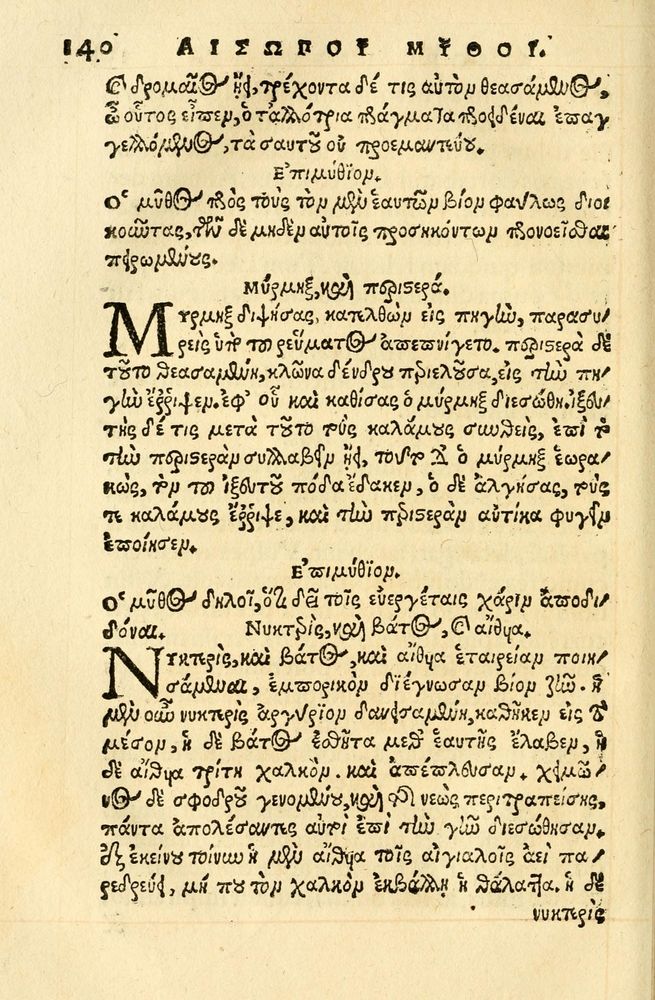 140 ΑΙΣΩΠΟΥ ΜΥΘΟΙ.
δρομαῖος ᾔει, τρέχοντα δέ τις αὐτὸν θεασάμενος,
ὦ οὗτος εἶπεν, ὁ τἀλλότρια πράγματα προειδέναι ἐπαγ
γελλόμενος, τὰ σαυτοῦ οὐ προεμαντεύου.
Ἐπιμύθϊον.
Ὁ μῦθος πρὸς τοὺς τὸν μὲν ἑαυτῶν βίον φαύλως διοι
κοῶτας, τῶν δὲ μηδὲν αὐτοῖς προσηκόντων προνοεῖσθαι
πειρωμένους.
Μύρμηξ, καὶ περιστερά.
Μύρμηξ διψήσας, κατελθὼν εἰς πηγὴν, παρασυ/
ρεὶς ὑπὸ τοῦ ῥεύματος ἀπεπνίγετο. περιστερὰ δὲ
τοῦτο θεασαμένη, κλῶνα δένδρου περιελοῦσα, εἰς τὴν πη/
γὴν ἔῤῥιψεν. ἐφ' οὗ καὶ καθίσας ὁ μύρμηξ διεσώθη. ἰξευ/
τὴς δέ τις μετὰ τοῦτο τοὺς καλάμους συνθεὶς, ἐπὶ τὸ
τὴν περιστερὰν συλλαβεῖν ᾔει, τοῦτο δ' ὁ μύρμηξ ἑωρα/
κὼς, τὸν τοῦ ἰξευτοῦ πόδα ἔδακεν, ὁ δὲ ἀλγήσας, τούς
τε καλάμους ἔῤῥιψε, καὶ τὴν περιστερὰν αὐτίκα φυγεῖν
ἐποίησεν.
Ἐπιμύθϊον.
Ὁ μῦθος δηλοῖ, ὅτι δεῖ τοῖς εὐεργέταις χάριν ἀποδι/
δόναι. Νυκτερὶς, καὶ βάτος, καὶ αἴθυα.
Νυκτερὶς, καὶ βάτος, καὶ αἴθυα ἑταιρείαν ποιη/
σάμεναι, ἐμπορικὸν διέγνωσαν βίον ζῆν. ἡ
μὲν οὖν νυκτερὶς ἀργύριον δανεισαμένη, καθῆκεν εἰς τὸ
μέσον, ἡ δὲ βάτος ἐσθῆτα μεθ' ἑαυτῆς ἔλαβεν, ἡ
δὲ αἴθυα τρίτη χαλκόν. καὶ ἀπέπλευσαν. χειμῶ/
νος δὲ σφοδροῦ γενομένου, καὶ τῆς νεὼς περιτραπείσης,
πάντα ἀπολέσαντες αὐτοὶ ἐπὶ τὴν γῆν διεσώθησαν.
ἐξ ἐκείνου τοίνυν ἡ μὲν αἴθυα τοῖς αἰγιαλοῖς ἀεὶ πα/
ρεδρεύει, μή που τὸν χαλκὸν ἐκβάλλῃ ἡ θάλαττα. ἡ δὲ
νυκτερὶς